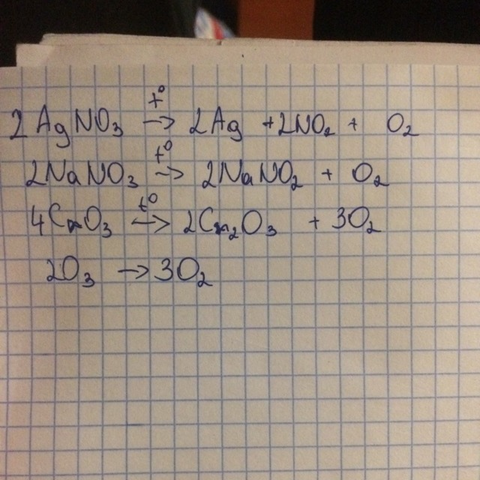 2AgNO₃ t°→ 2Ag + 2NO₂ + O₂
2NaNO₃ t°→ 2NaNO₂ + O₂
4CrO₃ t°→ 2Cr₂O₃ + 3O₂
2O₃ → 3O₂